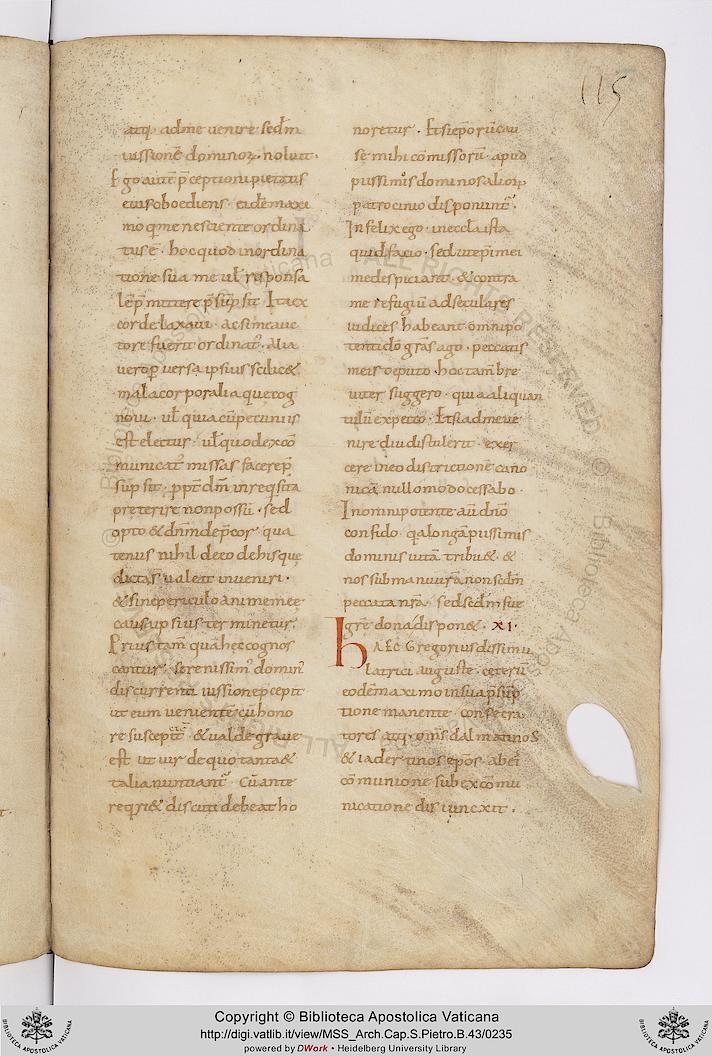 115
atq; adme uenire sedm̄
iussionē dominoꝝ · noluit ·
Ego autē p̄ceptioni pietatis
eius oboediens · eidē maxi
mo qui me nesciente ordina
tus ē · hoc quod in ordina
tione sua me ul̄ responsa
lē p̄mittere p̄sūpsit · Ita ex
corde laxaui · ac si me auc
tore fuerit ordinat᾽ · alia
uero ꝑuersa ipsius scilic&
mala corporalia que cog
noui · ul̄ quia cū pecuniis
est electus · ul̄ quod excō
municat᾽ missas facere p̄
sūpsit · ꝓpt̄ dm̄ inreqsita
preterire non possū · sed
opto & dn̄m dep̄cor · qua
tenus nihil de eo de his que
dicta s̄ ualeat inueniri ·
& sine periculo anime mee
causa ipsius terminetur ·
Prius tam̄ quā hec cognos
cantur · serenissim᾽ domin᾽
discurrenti iussione p̄cepit
ut eum uenientē cū hono
re suscepī · & ualde graue
est ut uir de quo tanta &
talia nuntiant᾽ · Cū ante
reqri & discuti debeat ho
noretur · Et si epōrū cau
se mihi cōmissorū apud
piissimos dominos alioꝝ
patrocinio disponunt᾽ ·
Infelix ego · in eccla ista
quid facio · sed ut epi mei
me despiciant · & contra
me refugiū ad seculares
iudices habeant omnipo
tenti dō grās ago · peccatis
meis deputo · hoc tam̄ bre
uiter suggero · quia aliquan
tulū expecto · Et si ad me ue
nire diu distulerit · exer
cere in eo districtionē cano
nicā nullo modo cessabo ·
In omnipotente aū dn̄o
confido · q̄a longā piissimis
dominis uitā tribu& · &
nos sub manu urā non sedm̄
peccata nr̄a · sed sedm̄ sue
grē dona dispon& · XI ·
hAEC Gregorius dissimu
latrici auguste · ceterū
eodē maximo in sua p̄sūp
tione manente · consecra
tores atq; om̄s dalmatinos
& iadertinos epōs · ab ei᾽
cōmunione sub excōmu
nicatione disiuncxit ·
Copyright © Biblioteca Apostolica Vaticana
http://digi.vatlib.it/view/MSS_Arch.Cap.S.Pietro.B.43/0235
powered by DWork • Heidelberg University Library